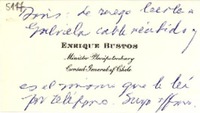 5177
Doris: le ruego leerle a
Gabriela cable recibido y
ENRIQUE BUSTOS
Minister Plenipotentiary
Consul General of Chile
es el mismo que le leí
por teléfono. Suyo affmo.